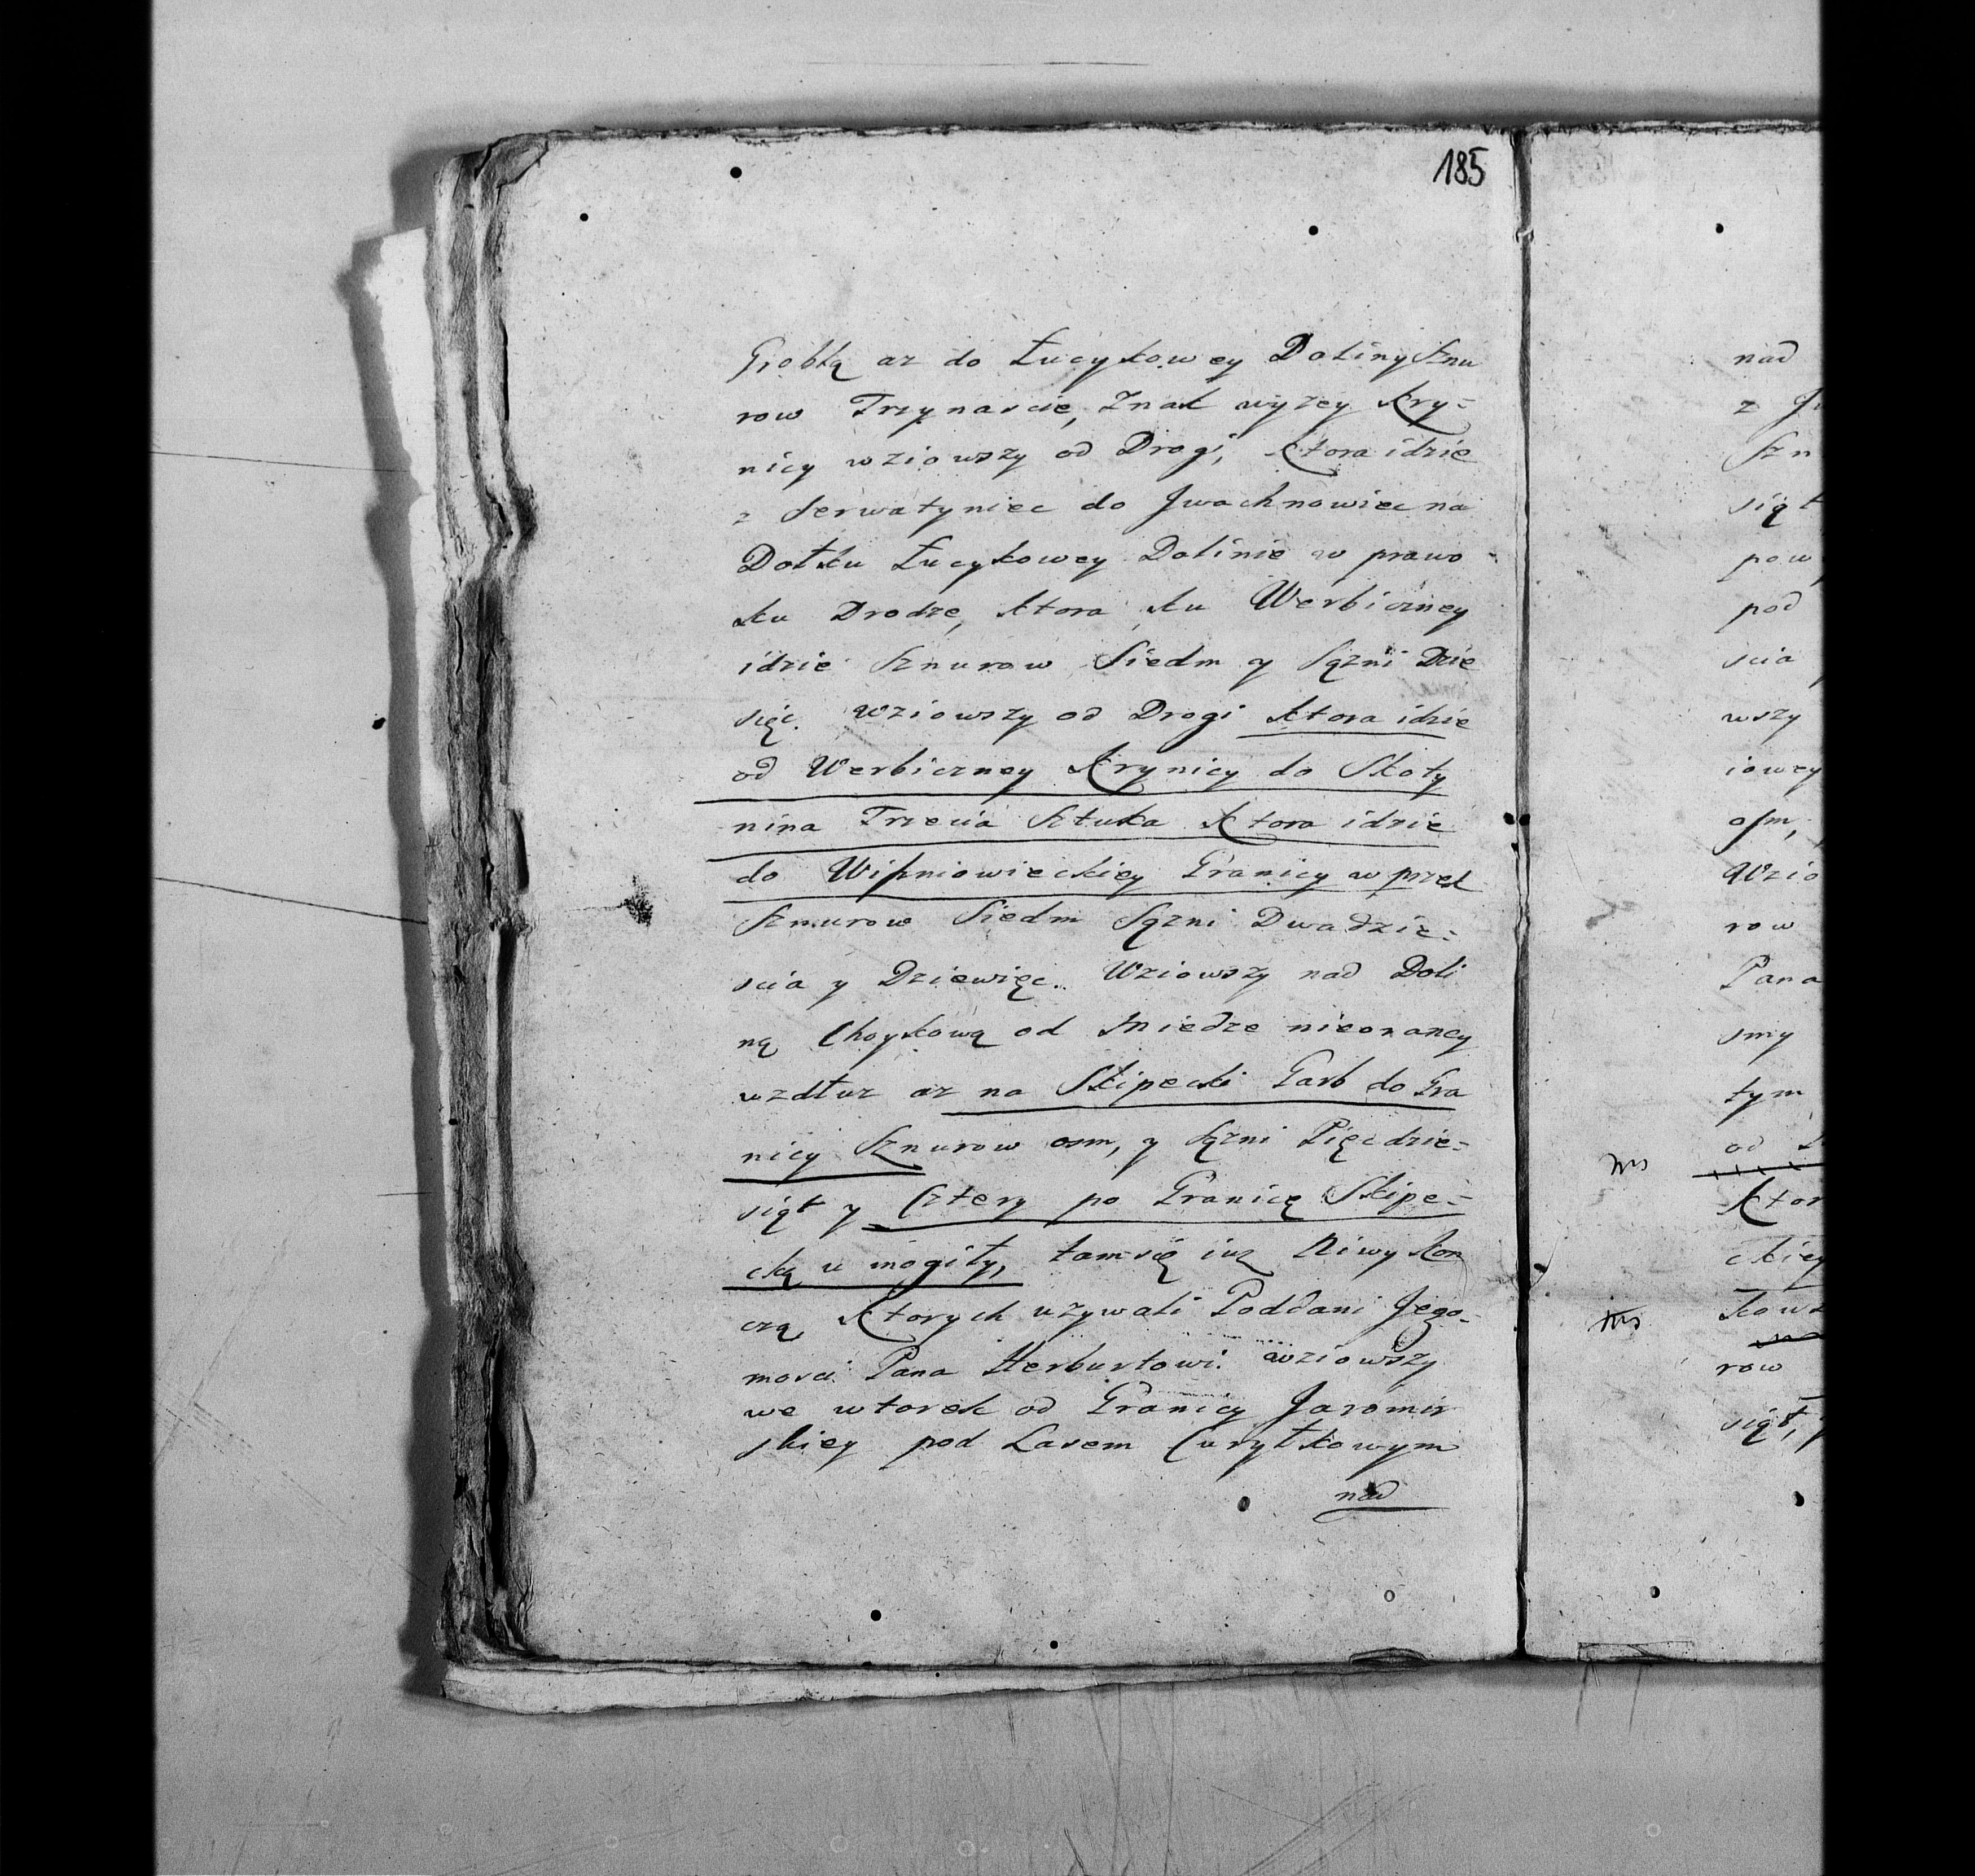 185
Groblą az do Łucykowey Doliny Sznu
row Trzynascie, Znak wyzey Kry=
nicy wziowszy od Drogi, Ktora idzie
z Serwatyniec do Jwachnowiec na
Dołku Łucykowey Dolinie w prawo
ku Drodze, ktora ku Werbiczney
idzie Sznurow Siedm y Sązni Dzie
sięc. Wziowszy od Drogi ktora idzie
od Werbiczney Krynicy do Skoty
nina Trzecia Sztuka Ktora idzie
do Wiśniowieckiey Granicy w przek
Sznurow Siedm Sązni Dwadzie=
scia y Dziewięc. Wziowszy nad Doli
ną Choykową od Miedze nieoraney
wzdłuz az na Skipecki Garb do Gra
nicy Sznurow osm, y Sązni Pięcdzie=
siąt y Cztery po Granicę Skipe=
cką u mogiły, tam się iuz Niwy kon
czą Ktorych uzywali Poddani Jego=
mosci Pana Herburtowi. Wziowszy
we wtorek od Granicy Jaromir
skiey pod Lasem Curytkowym
nad
nad
z
Szn
siąt
pow
pod
scia
wszy
iowey
osm,
Wzio
row
Pana
smy
tym
od
Ktor
ckiey
row
siąt,